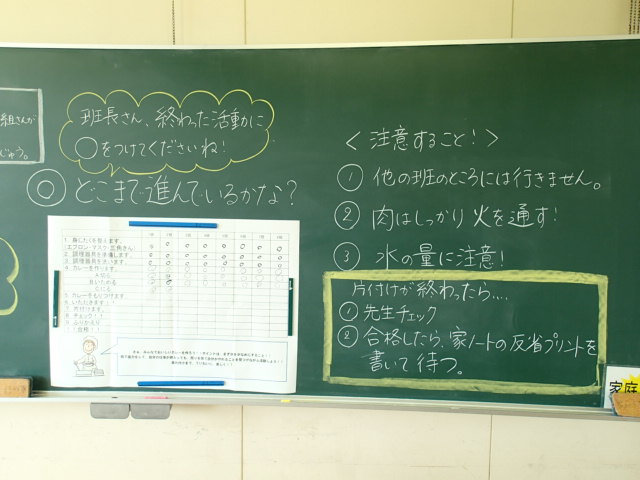 組さんが
じゅう。
班長さん、終わった活動に
○をつけてくださいね!
◎どこまで進んでいるかな?
1 身じたくを整えます。
エプロン・マスク・三角きん)
2 調理器具を準備します。
3 調理器具を洗います。
4 カレーを作ります。
いためる
にこむ
5 カレーをもりつけます
6 いただきます!!
7 片付けます。
8 チェック!!
9 ふりかえり
<注意すること!>
① 他の班のところには行きません。
② 肉はしっかり火を通す!
③ 水の量に注意!
片付けが終わったら....
① 先生チェック
② 合格したら、家ノートの反省プリントを
書いて待つ。
家庭